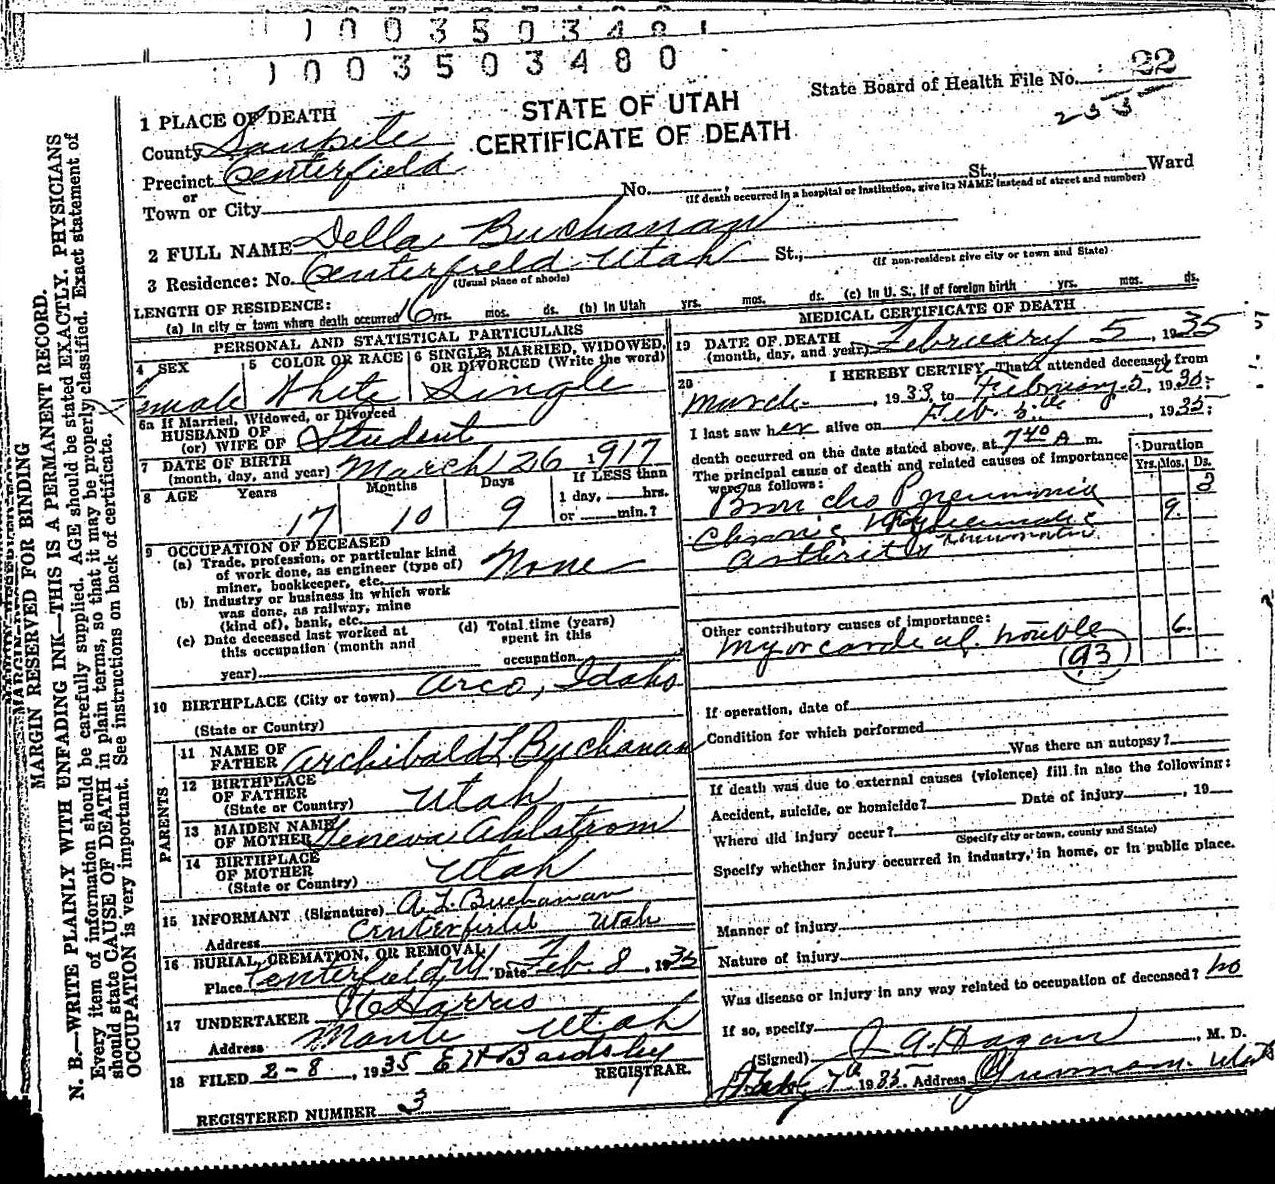 1003503480
State Board of Health File No. 22
235
STATE OF UTAH
CERTIFICATE OF DEATH
1 PLACE OF DEATH
County Sanpete
Precinct Centerfield
or
Town or City
No. St., Ward
(If death occurred in a hospital or institution, give its NAME instead of street and number)
2 FULL NAME Della Buchanan
3 Residence: No. Centerfield Utah St.,
(Usual place of abode)
(If non-resident give city or town and State)
LENGTH OF RESIDENCE:
(a) In city or town where death occurred 16 yrs. mos. ds. (b) In Utah yrs. mos. ds. (c) In U. S., if of foreign birth yrs. mos. ds.
PERSONAL AND STATISTICAL PARTICULARS
4 SEX
Female
5 COLOR OR RACE
White
6 SINGLE, MARRIED, WIDOWED, OR DIVORCED (Write the word)
Single
6a If Married, Widowed, or Divorced
HUSBAND OF
(or) WIFE OF Student
7 DATE OF BIRTH
(month, day, and year) March 26 1917
8 AGE Years Months Days If LESS than
17 10 9 1 day, hrs.
or min.?
9 OCCUPATION OF DECEASED
(a) Trade, profession, or particular kind
of work done, as engineer (type of)
miner, bookkeeper, etc. None
(b) Industry or business in which work
was done, as railway, mine
(kind of), bank, etc.
(c) Date deceased last worked at
this occupation (month and
year)
(d) Total time (years)
spent in this
occupation
10 BIRTHPLACE (City or town) Arco, Idaho
(State or Country)
PARENTS
11 NAME OF
FATHER Archibald L Buchanan
12 BIRTHPLACE
OF FATHER
(State or Country) Utah
13 MAIDEN NAME
OF MOTHER Geneva Ahlstrom
14 BIRTHPLACE
OF MOTHER
(State or Country) Utah
15 INFORMANT (Signature) A. L. Buchanan
Address Centerfield Utah
16 BURIAL, CREMATION, OR REMOVAL
Place Centerfield, Ut. Date Feb. 8, 1935
17 UNDERTAKER Harris
Address Manti Utah
18 FILED 2-8, 1935 E H Bardsley
REGISTRAR.
REGISTERED NUMBER 3
MEDICAL CERTIFICATE OF DEATH
19 DATE OF DEATH
(month, day, and year) February 5, 1935
20 I HEREBY CERTIFY, That I attended deceased from
March, 1933, to February 5th, 1935;
I last saw her alive on Feb. 5th, 1935;
death occurred on the date stated above, at 7 40 A m.
The principal cause of death and related causes of importance
were as follows:
Duration
Yrs. Mos. Ds.
Broncho Pneumonia 3
Chronic Rheumatic 9
Arthritis
Other contributory causes of importance:
Myocardeal trouble 6
(93)
If operation, date of
Condition for which performed
Was there an autopsy?
If death was due to external causes (violence) fill in also the following:
Accident, suicide, or homicide? Date of injury, 19
Where did injury occur?
(Specify city or town, county and State)
Specify whether injury occurred in industry, in home, or in public place.
Manner of injury
Nature of injury
Was disease or injury in any way related to occupation of deceased? no
If so, specify
(Signed) J A. Hagan, M. D.
Feb 7th 1935. Address Gunnison. Utah
MARGIN RESERVED FOR BINDING
N. B.—WRITE PLAINLY WITH UNFADING INK—THIS IS A PERMANENT RECORD.
Every item of information should be carefully supplied. AGE should be stated EXACTLY. PHYSICIANS
should state CAUSE OF DEATH in plain terms, so that it may be properly classified. Exact statement of
OCCUPATION is very important. See instructions on back of certificate.